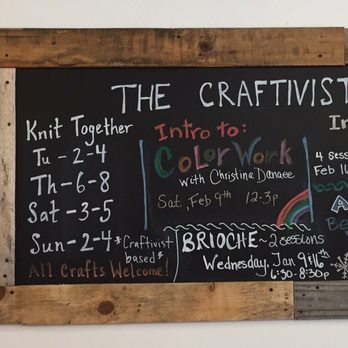 THE CRAFTIVIST
Knit Together
Tu - 2-4
Th - 6-8
Sat - 3-5
Sun - 2-4
*Craftivist
based*
All Crafts Welcome!
Intro to:
ColorWork
with Christina Danaee
Sat, Feb 9th 12-3p
BRIOCHE ~ 2 sessions
Wednesday, Jan 9 & 16th
6:30 - 8:30p
In
4 se
Feb 1